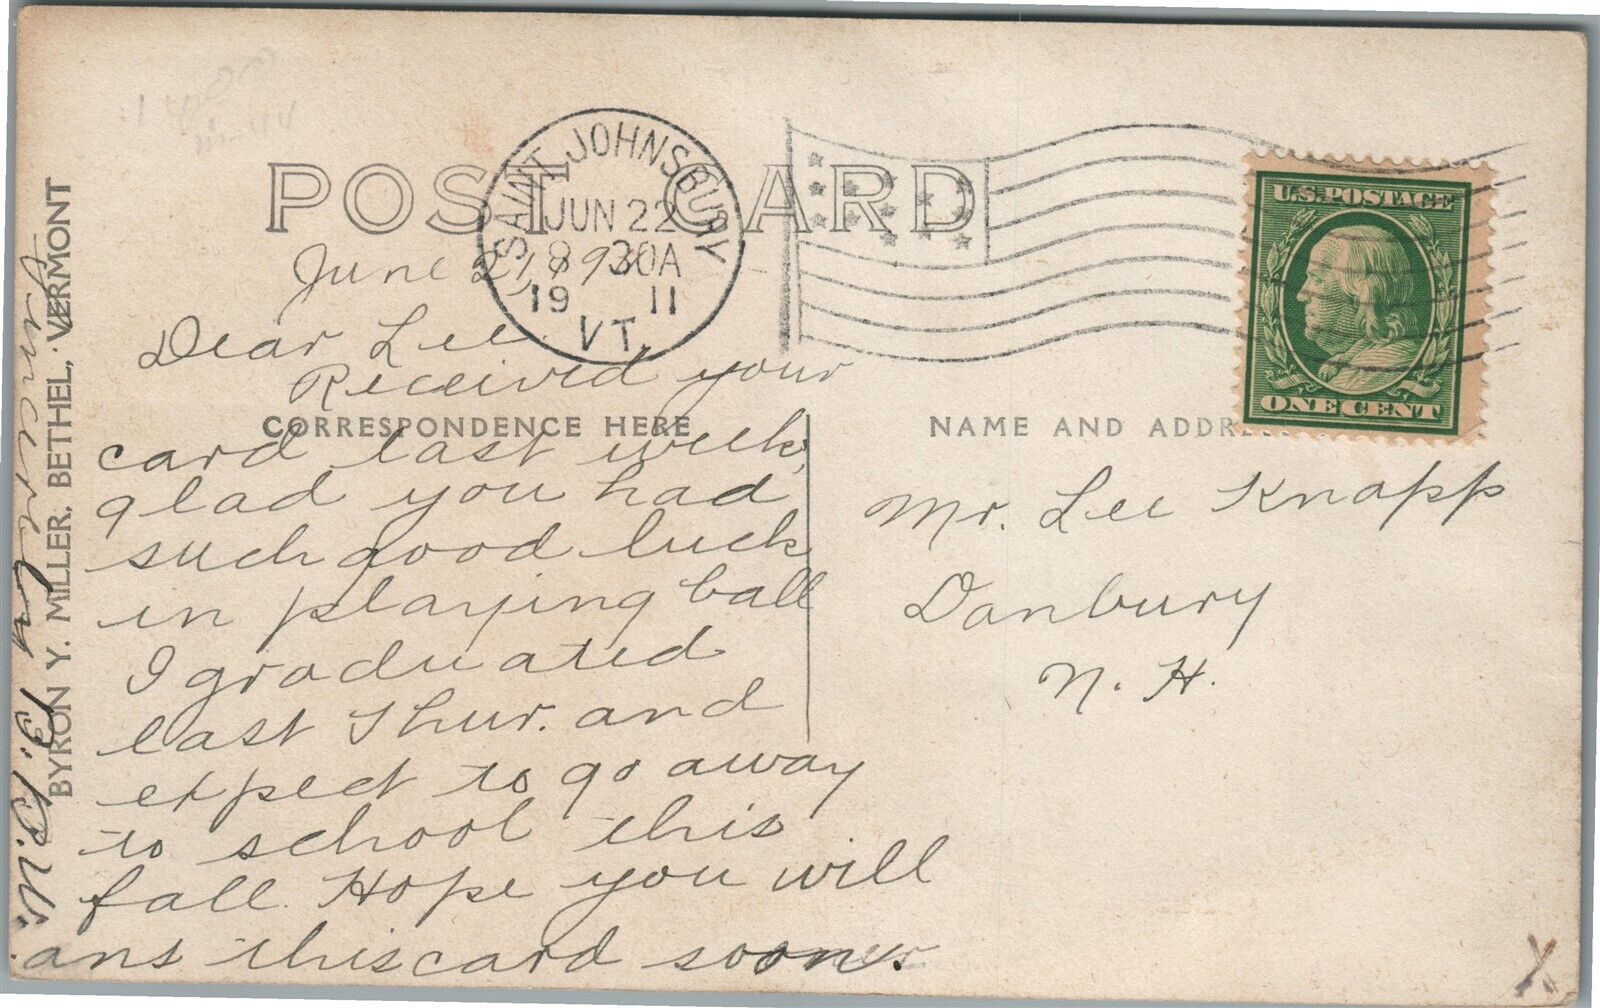 POST CARD
SAINT JOHNSBURY
JUN 22
8 30A
19 11
VT.
U.S. POSTAGE
ONE CENT
June 21,
Dear Lee.
Received your
CORRESPONDENCE HERE
card last week,
glad you had
such good luck
in playing ball
I graduated
last Thur. and
expect to go away
to school this
fall. Hope you will
ans this card soon.
NAME AND
Mr. Lee Knapp
Danbury
N. H.
BYRON Y. MILLER, BETHEL, VERMONT
X